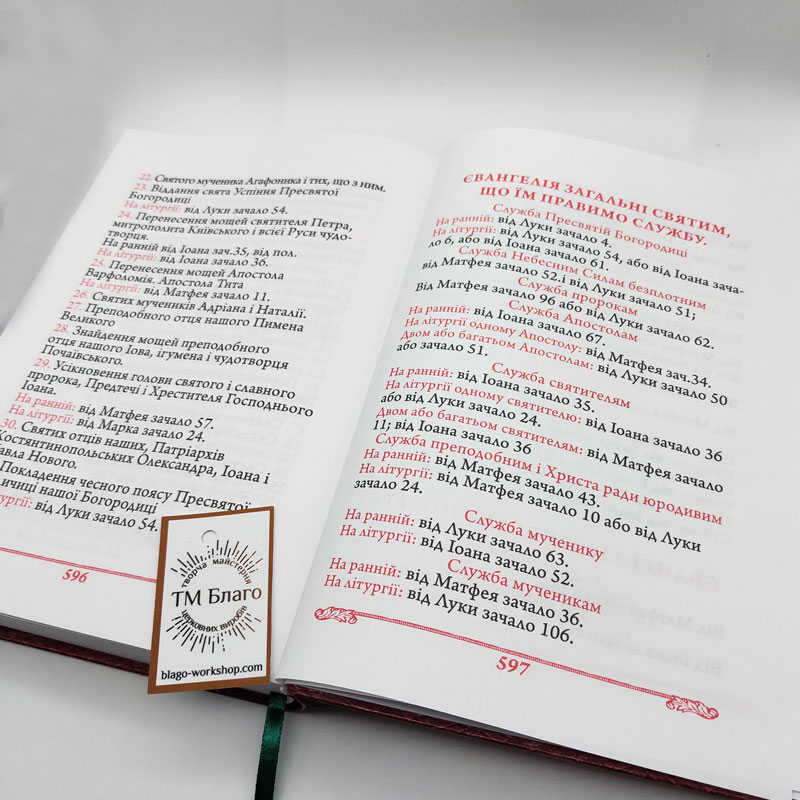 22. Святого мученика Агафоника і тих, що з ним.
23. Віддання свята Успіння Пресвятої
Богородиці
На літургії: від Луки зачало 54.
24. Перенесення мощей святителя Петра,
митрополита Київського і всієї Руси чудо-
творця.
На ранній від Іоана зач.35, від пол.
На літургії: від Іоана зачало 36.
25. Перенесення мощей Апостола
Варфоломія. Апостола Тита
На літургії: від Матфея зачало 11.
26. Святих мучеників Адріана і Наталії.
27. Преподобного отця нашого Пимена
Великого
28. Знайдення мощей преподобного
отця нашого Іова, ігумена і чудотворця
Почаївського.
29. Усікновення голови святого і славного
пророка, Предтечі і Хрестителя Господнього
Іоана.
На ранній: від Матфея зачало 57.
На літургії: від Марка зачало 24.
30. Святих отців наших, Патріархів
Костянтинопольських Олександра, Іоана і
авла Нового.
Покладення чесного поясу Пресвятої
ичиці нашої Богородиці
ургії: від Луки зачало 54.
596
ЄВАНГЕЛІЯ ЗАГАЛЬНІ СВЯТИМ,
ЩО ЇМ ПРАВИМО СЛУЖБУ.
Служба Пресвятій Богородиці
На ранній: від Луки зачало 4.
На літургії: від Луки зачало 54, або від Іоана зача-
ло 6, або від Іоана зачало 61.
Служба Небесним Силам безплотним
від Матфея зачало 52.і від Луки зачало 51;
Служба пророкам
Від Матфея зачало 96 або від Луки зачало 62.
Служба Апостолам
На ранній: від Іоана зачало 67.
На літургії одному Апостолу: від Матфея зач.34.
Двом або багатьом Апостолам: від Луки зачало 50
або зачало 51.
Служба святителям
На ранній: від Іоана зачало 35.
На літургії одному святителю: від Іоана зачало 36
або від Луки зачало 24.
Двом або багатьом святителям: від Матфея зачало
11; від Іоана зачало 36
Служба преподобним і Христа ради юродивим
На ранній: від Матфея зачало 43.
На літургії: від Матфея зачало 10 або від Луки
зачало 24.
Служба мученику
На ранній: від Луки зачало 63.
На літургії: від Іоана зачало 52.
Служба мученикам
На ранній: від Матфея зачало 36.
На літургії: від Луки зачало 106.
597
творча майстерня
ТМ Благо
церковних виробів
blago-workshop.com